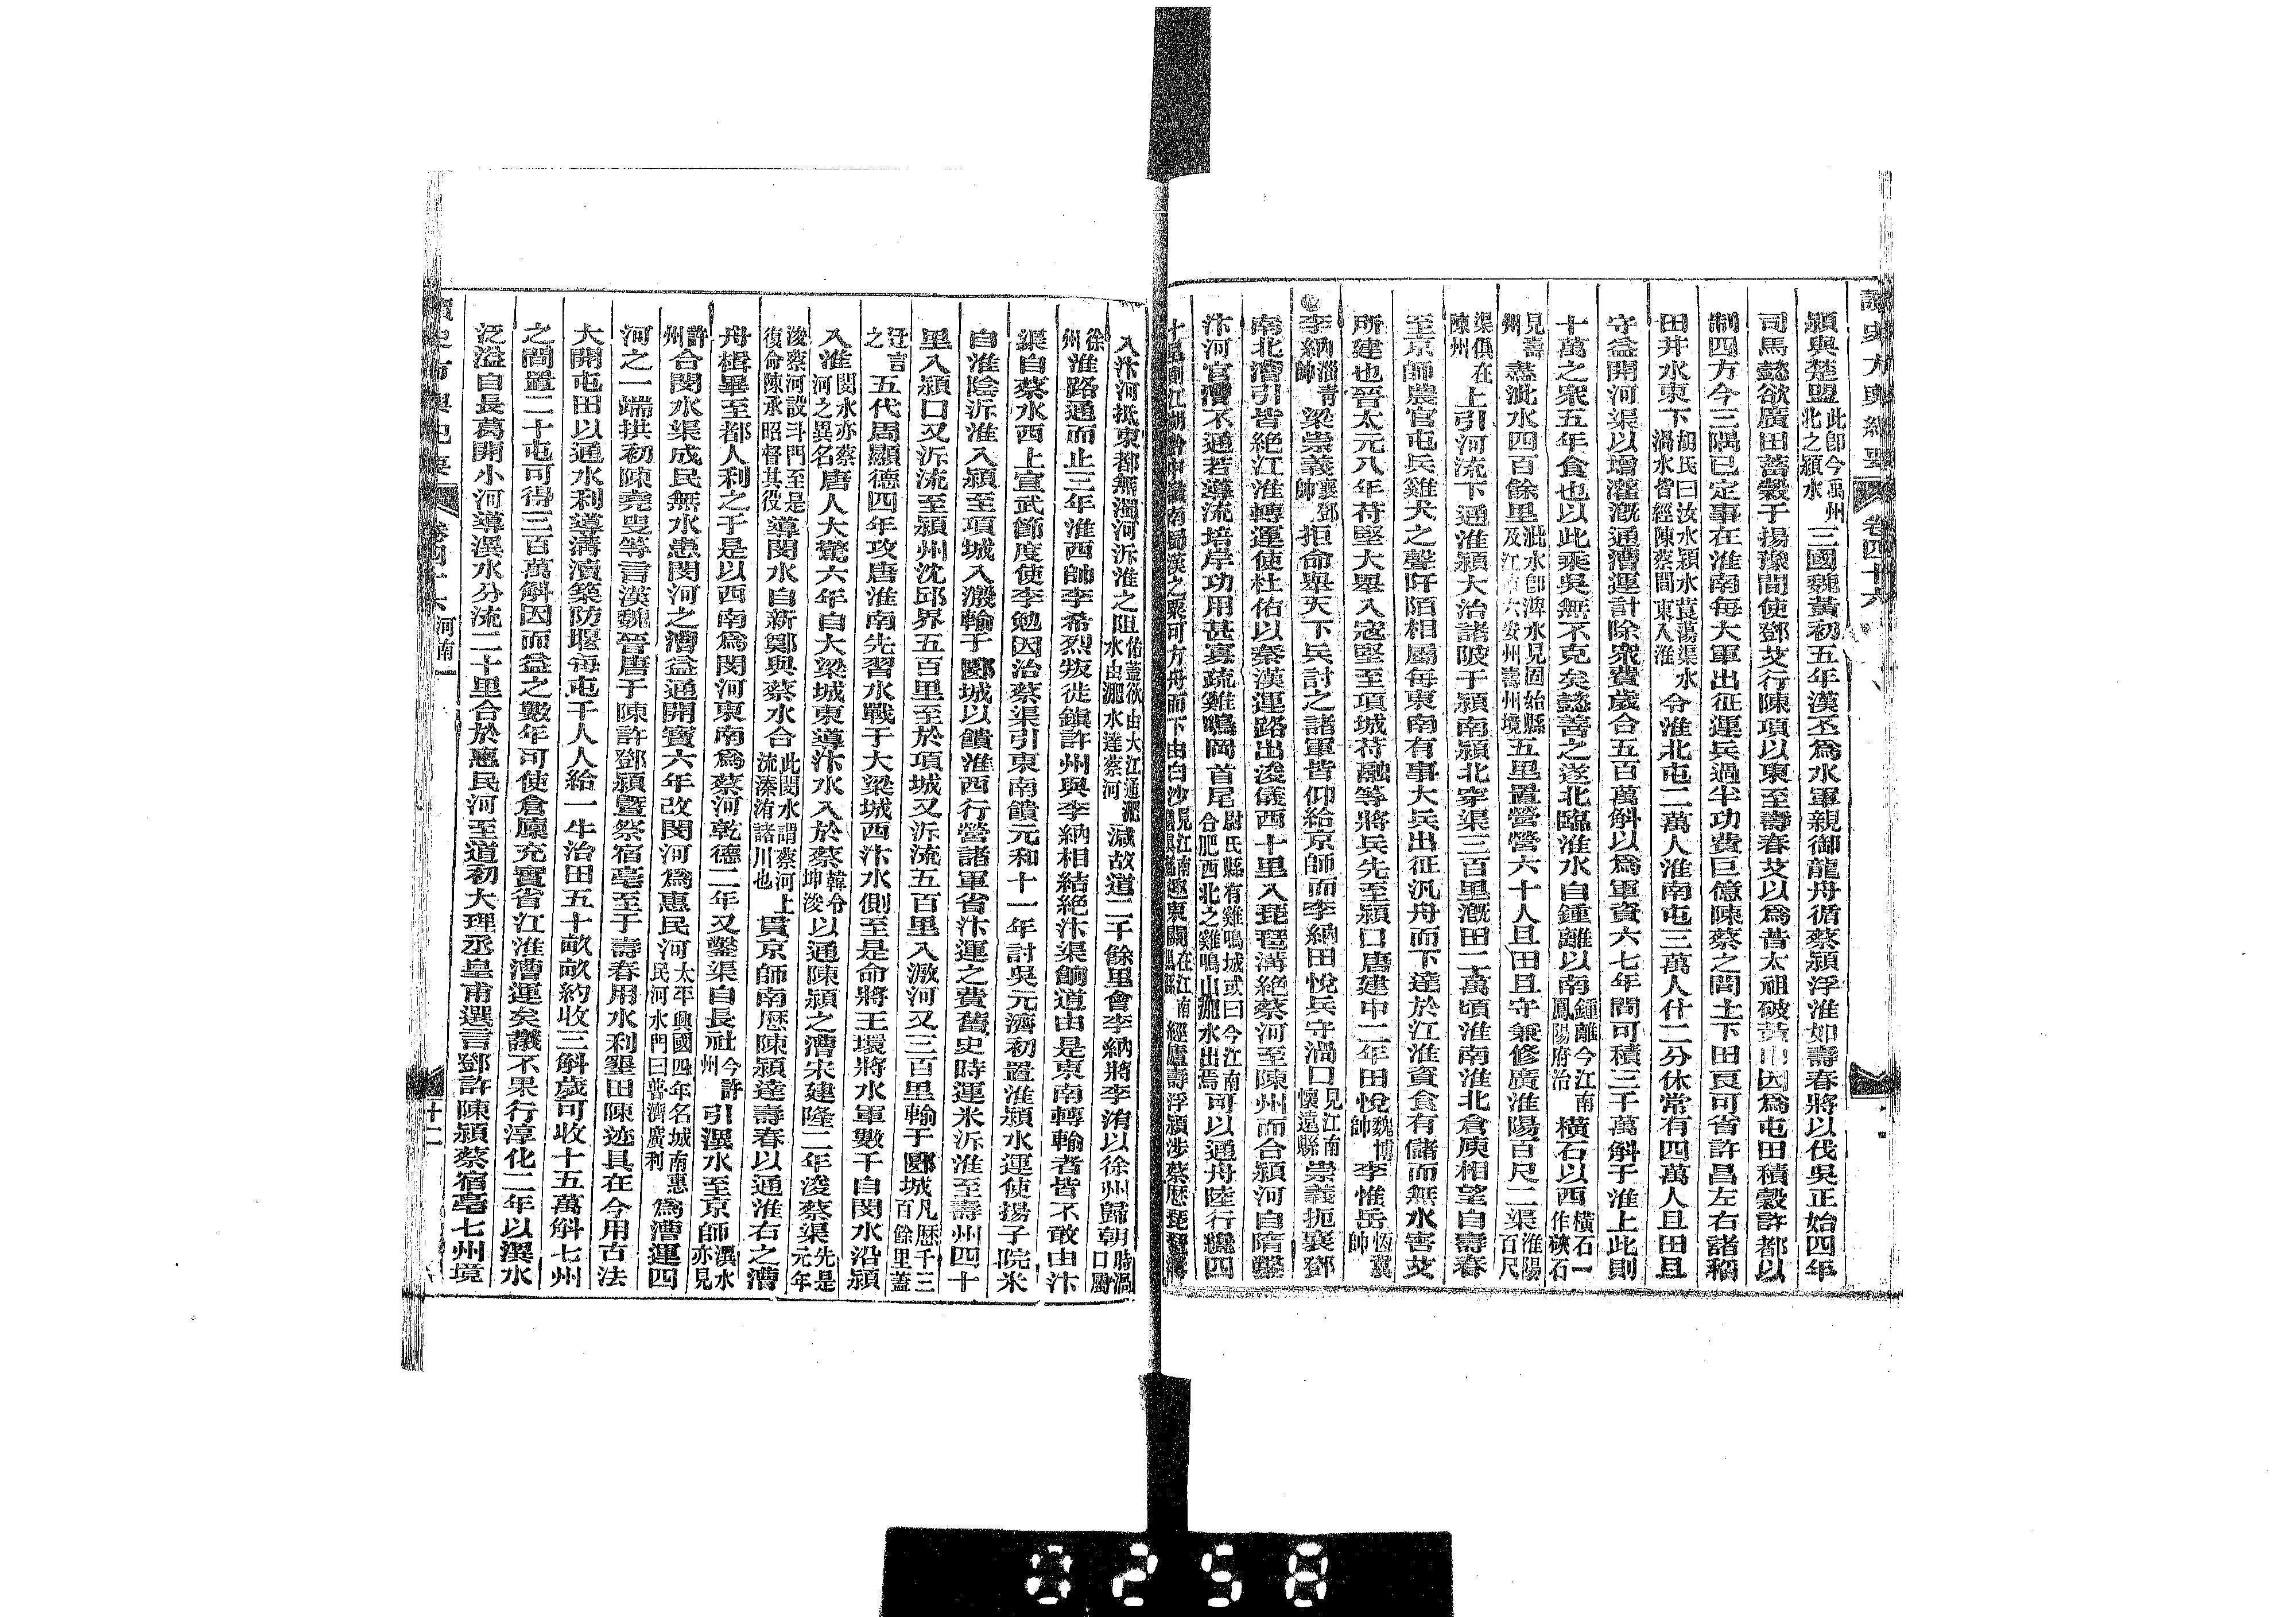 讀史方輿紀要 卷四十六
潁與楚盟此卽今禹州北之潁水三國魏黃初五年漢丕爲水軍親御龍舟循蔡潁浮淮如壽春將以伐吳正始四年
司馬懿欲廣田蓄穀于揚豫間使鄧艾行陳項以東至壽春艾以爲昔太祖破黃巾因爲屯田積穀許都以
制四方今三隅已定事在淮南每大軍出征運兵過半功費巨億陳蔡之間土下田良可省許昌左右諸稻
田井水東下胡氏曰汝水潁水莨蕩渠水渦水皆經陳蔡間東入淮令淮北屯二萬人淮南屯三萬人什二分休常有四萬人且田且
守益開河渠以增灌漑通漕運計除衆費歲合五百萬斛以爲軍資六七年間可積三千萬斛于淮上此則
十萬之衆五年食也以此乘吳無不克矣懿善之遂北臨淮水自鍾離以南鍾離今江南鳳陽府治橫石以西橫石一作硤石
見壽州盡沘水四百餘里沘水卽淠水見固始縣及江南六安州壽州境五里置營營六十人且田且守兼修廣淮陽百尺二渠淮陽百尺
渠俱在陳州上引河流下通淮潁大治諸陂于潁南潁北穿渠三百里漑田二萬頃淮南淮北倉庾相望自壽春
至京師農官屯兵雞犬之聲阡陌相屬每東南有事大兵出征汎舟而下達於江淮資食有儲而無水害艾
所建也晉太元八年苻堅大舉入寇堅至項城苻融等將兵先至潁口唐建中二年田悅魏博帥李惟岳恆冀帥
李納淄青帥梁崇義襄鄧帥拒命舉天下兵討之諸軍皆仰給京師而李納田悅兵守渦口見江南懷遠縣崇義扼襄鄧
南北漕引皆絕江淮轉運使杜佑以秦漢運路出浚儀西十里入琵琶溝絕蔡河至陳州而合潁河自隋鑿
汴河官漕不通若導流培岸功用甚寡疏雞鳴岡首尾尉氏縣有雞鳴城或曰今江南合肥西北之雞鳴山淝水出焉可以通舟陸行纔四
十里則江湖黔中嶺南蜀漢之粟可方舟而下由白沙見江南儀眞縣趣東關在江南巢縣經廬壽浮潁涉蔡歷琵琶溝
入汴河抵東都無濁河泝淮之阻佑蓋欲由大江通淝水由淝水達蔡河減故道二千餘里會李納將李洧以徐州歸朝時渦口屬
徐州淮路通而止三年淮西帥李希烈叛徙鎭許州與李納相結絕汴渠餉道由是東南轉輸者皆不敢由汴
渠自蔡水西上宣武節度使李勉因治蔡渠引東南饋元和十一年討吳元濟初置淮潁水運使揚子院米
自淮陰泝淮入潁至項城入溵輸于郾城以饋淮西行營諸軍省汴運之費舊史時運米泝淮至壽州四十
里入潁口又泝流至潁州沈邱界五百里至於項城又泝流五百里入溵河又三百里輸于郾城凡歷千三百餘里蓋
迂言之五代周顯德四年攻唐淮南先習水戰于大梁城西汴水側至是命將王環將水軍數千自閔水沿潁
入淮閔水亦蔡河之異名唐人大驚六年自大梁城東導汴水入於蔡韓令坤浚以通陳潁之漕宋建隆二年浚蔡渠先是元年
浚蔡河設斗門至是復命陳承昭督其役導閔水自新鄭與蔡水合此閔水謂蔡河上流溱洧諸川也貫京師南歷陳潁達壽春以通淮右之漕
舟楫畢至都人利之于是以西南爲閔河東南爲蔡河乾德二年又鑿渠自長社今許州引潩水至京師潩水亦見
許州合閔水渠成民無水患閔河之漕益通開寶六年改閔河爲惠民河太平興國四年名城南惠民河水門曰普濟廣利爲漕運四
河之一端拱初陳堯叟等言漢魏晉唐于陳許鄧潁曁蔡宿亳至于壽春用水利墾田陳迹具在今用古法
大開屯田以通水利導溝瀆築防堰每屯千人人給一牛治田五十畝畝約收三斛歲可收十五萬斛七州
之間置二十屯可得三百萬斛因而益之數年可使倉廩充實省江淮漕運矣議不果行淳化二年以潩水
泛溢自長葛開小河導潩水分流二十里合於惠民河至道初大理丞皇甫選言鄧許陳潁蔡宿亳七州境
讀史方輿紀要 卷四十六 河南一 十二
0258